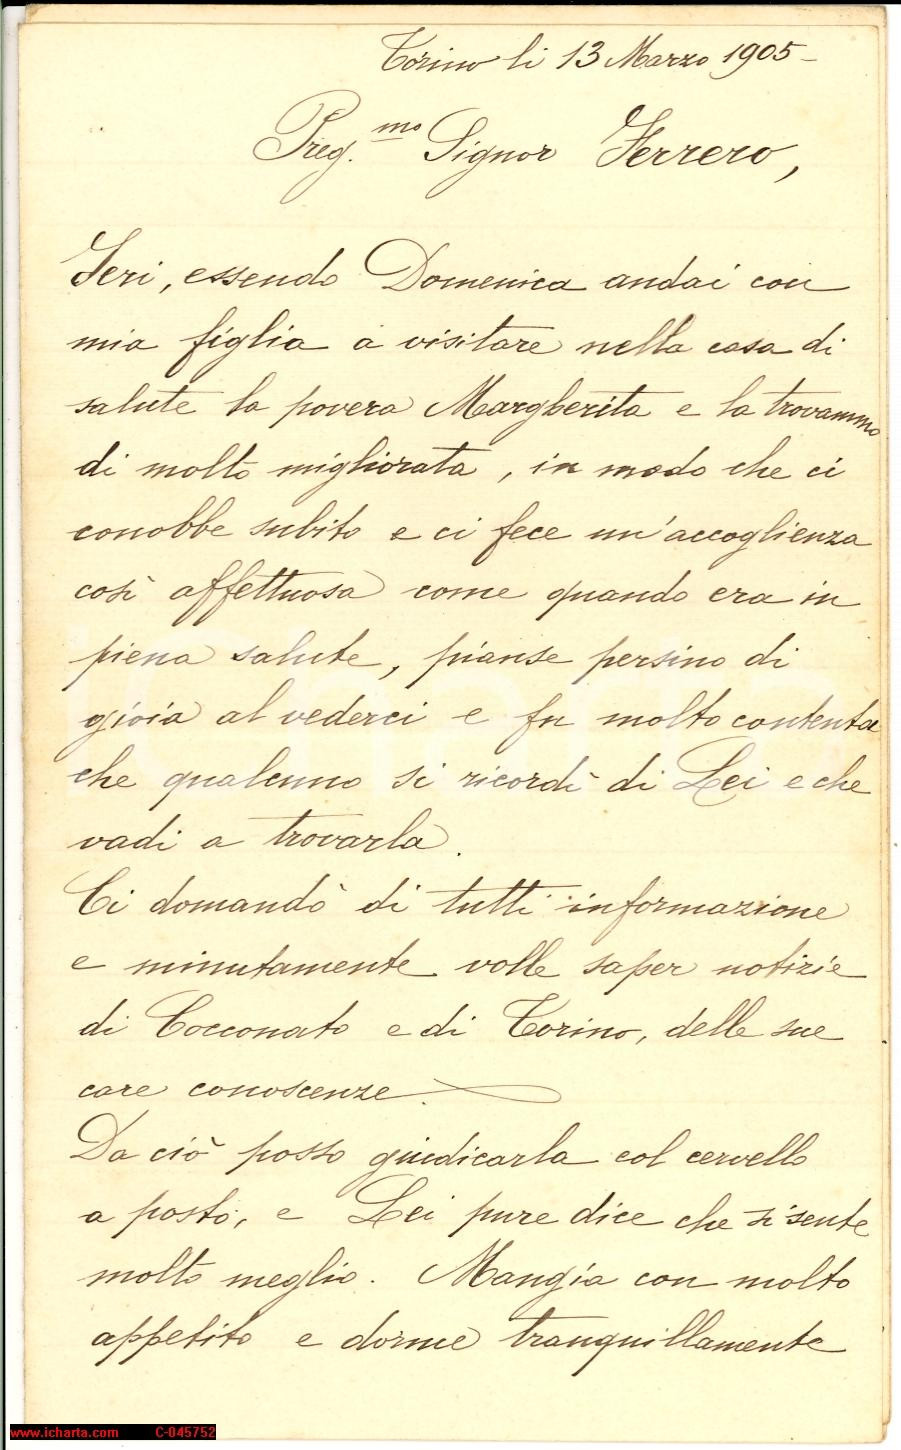 Torino li 13 Marzo 1905-
Preg.mo Signor Ferrero,
Ieri, essendo Domenica andai con
mia figlia a visitare nella casa di
salute la povera Margherita e la trovammo
di molto migliorata, in modo che ci
conobbe subito e ci fece un'accoglienza
così affettuosa come quando era in
piena salute, pianse persino di
gioia al vederci e fu molto contenta
che qualcuno si ricordi di Lei e che
vadi a trovarla.
Ci domandò di tutti informazione
e minutamente volle saper notizie
di Cocconato e di Torino, delle sue
care conoscenze.
Da ciò posso giudicarla col cervello
a posto, e Lei pure dice che si sente
molto meglio. Mangia con molto
appetito e dorme tranquillamente
iCharta
www.icharta.com C-045752